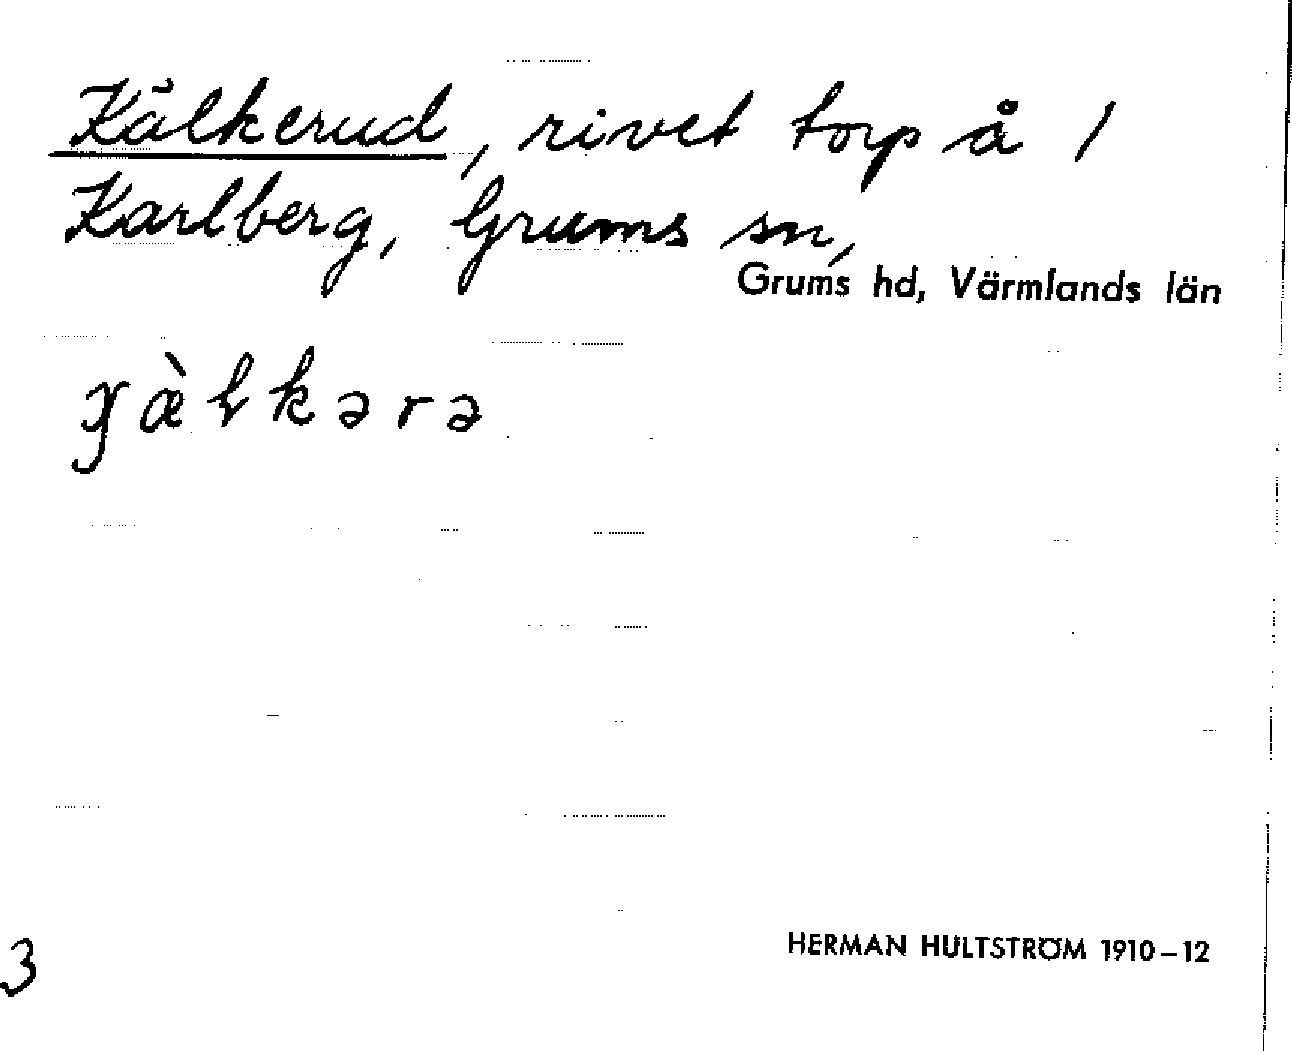 Kälkerud, rivet torp å 1
Karlberg, Grums sn,
Grums hd, Värmlands län
kərə
3
HERMAN HULTSTRÖM 1910–12